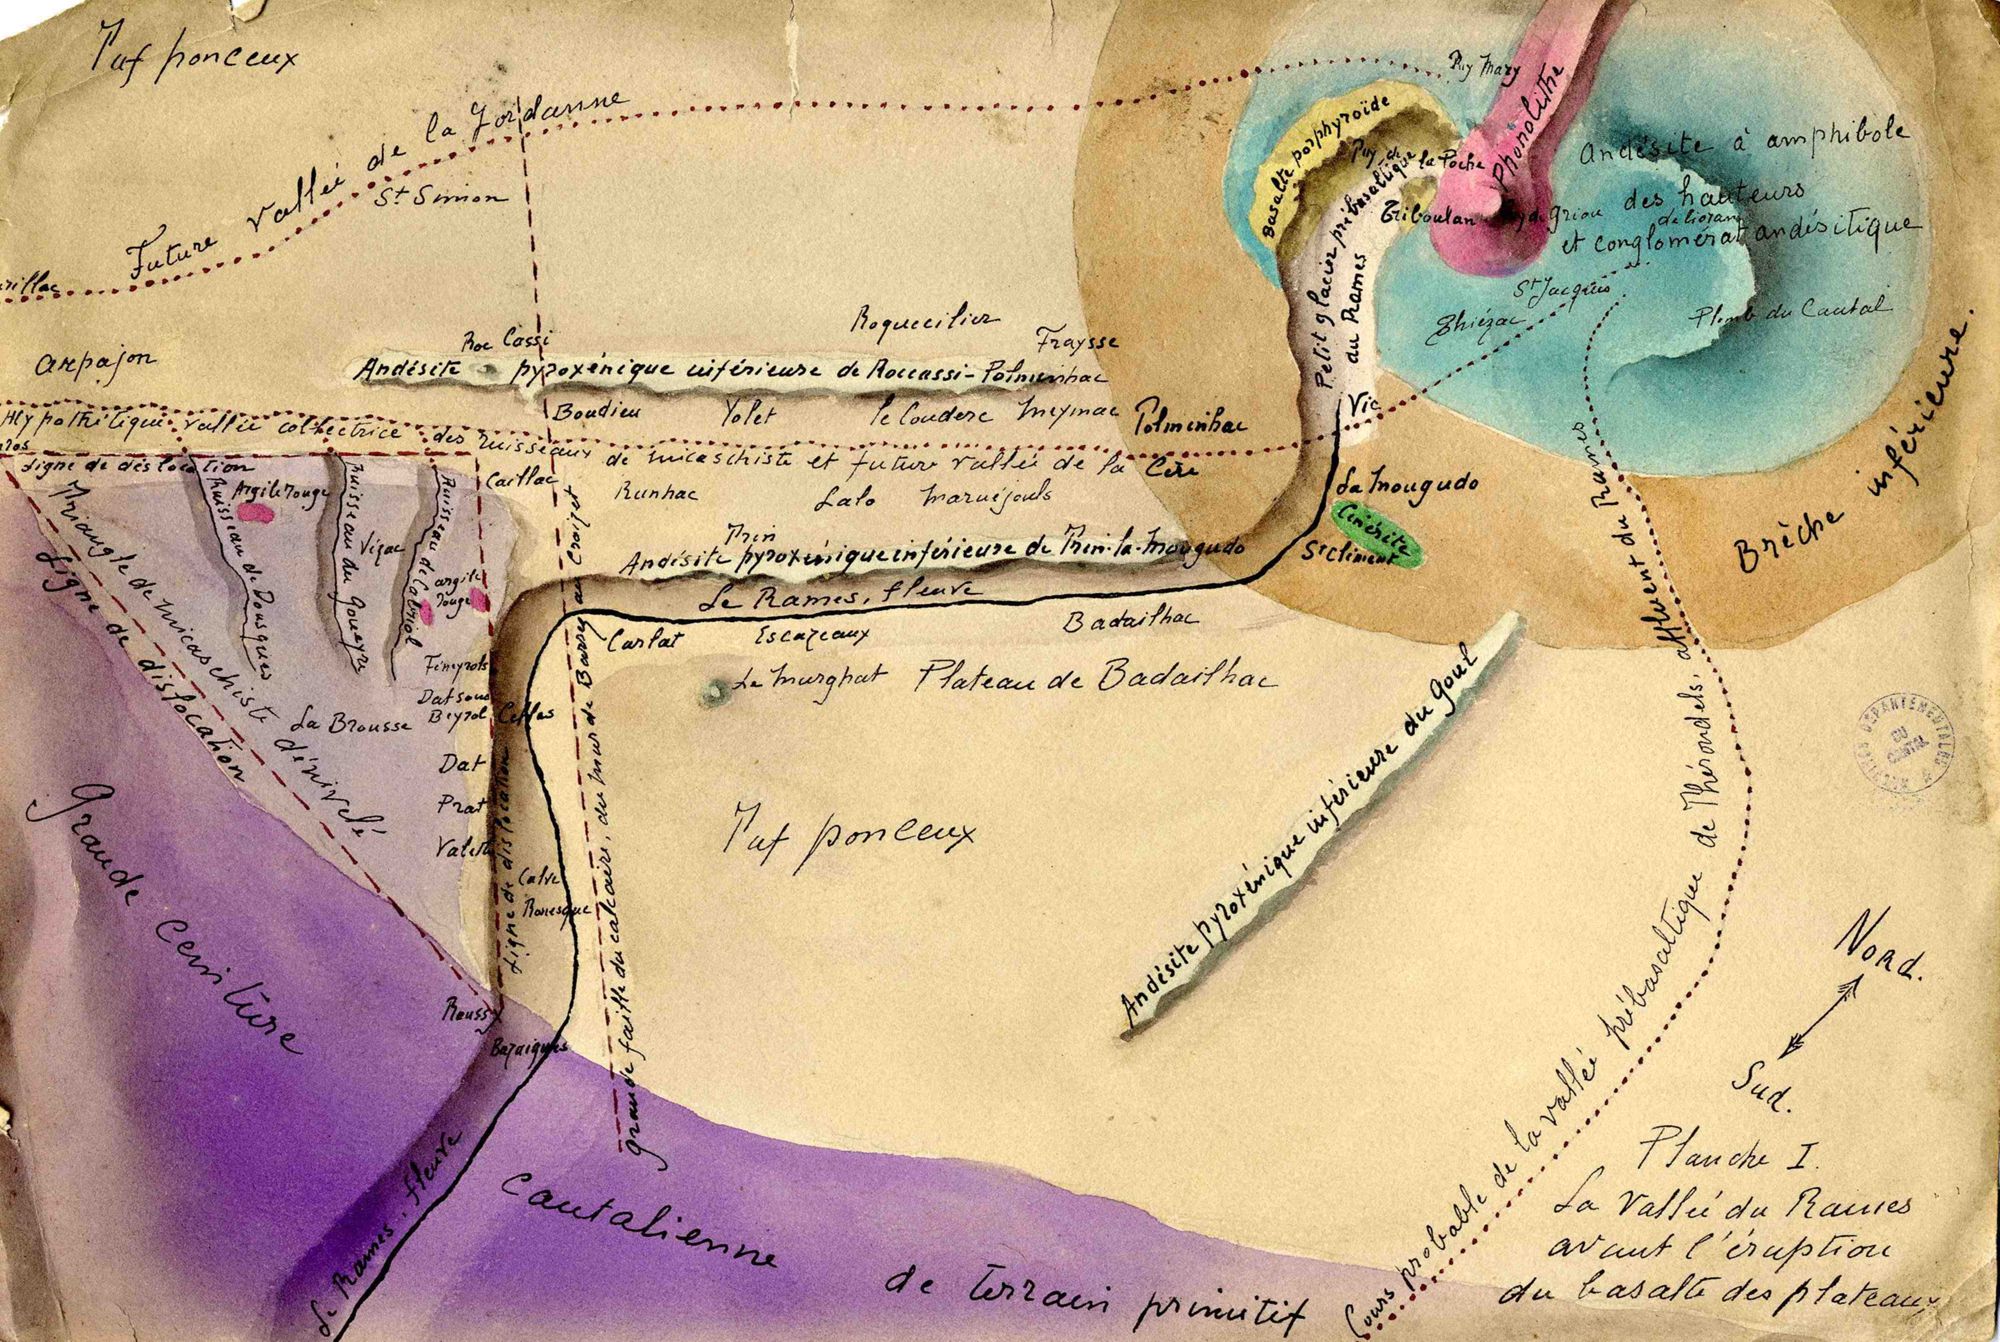 Tuf ponceux
Future vallée de la Jordanne
St Simon
Puy Mary
Phonolithe
Basalte porphyroïde
Puy de
la Poche
Griboulan
Puy de Griou
Andésite à amphibole
des hauteurs
de lioran
et conglomérat andésitique
St Jacques
Thiézac
Plomb du Cantal
Petit glacier prébasaltique
du Rames
Brèche inférieure.
Arpajon
Roc Cassi
Roquecilier
Fraysse
Andésite pyroxénique inférieure de Roccassi-Polminhac
Boudieu
Yolet
le Couderc
Meymac
Polminhac
Vic
Hypothétique vallée collectrice des ruisseaux de micaschiste et future vallée de la Cère
Ligne de dislocation
Caillac
Runhac
Lalo
Maruéjouls
La Mougudo
Cinérite
St Clément
Trin
Andésite pyroxénique inférieure de Trin-la-Mougudo
Le Rames, fleuve
Carlat
Escazeaux
Badailhac
Le Murghat
Plateau de Badailhac
Triangle de micaschiste dénivelé
Ligne de dislocation
Argile rouge
Ruisseau de Dousques
Ruisseau du Goueyre
Vézac
Ruisseau de Cabriol
argile
rouge
La Brousse
Celles
Dat
Prat
Calve
Ronesque
Ligne de dislocation
Grande faille du calcaire, du mur de Barrez au Croizet
Roussy
Bazaigues
Tuf ponceux
Andésite pyroxénique inférieure du Goul
Cours probable de la vallée prébasaltique de Thérondels, affluent du Rames
Grande ceinture
cantalienne
de terrain primitif
Le Rames, fleuve
Nord.
Sud.
ARCHIVES DÉPARTEMENTALES
DU
CANTAL
Planche I.
La Vallée du Rames
avant l'éruption
du basalte des plateaux